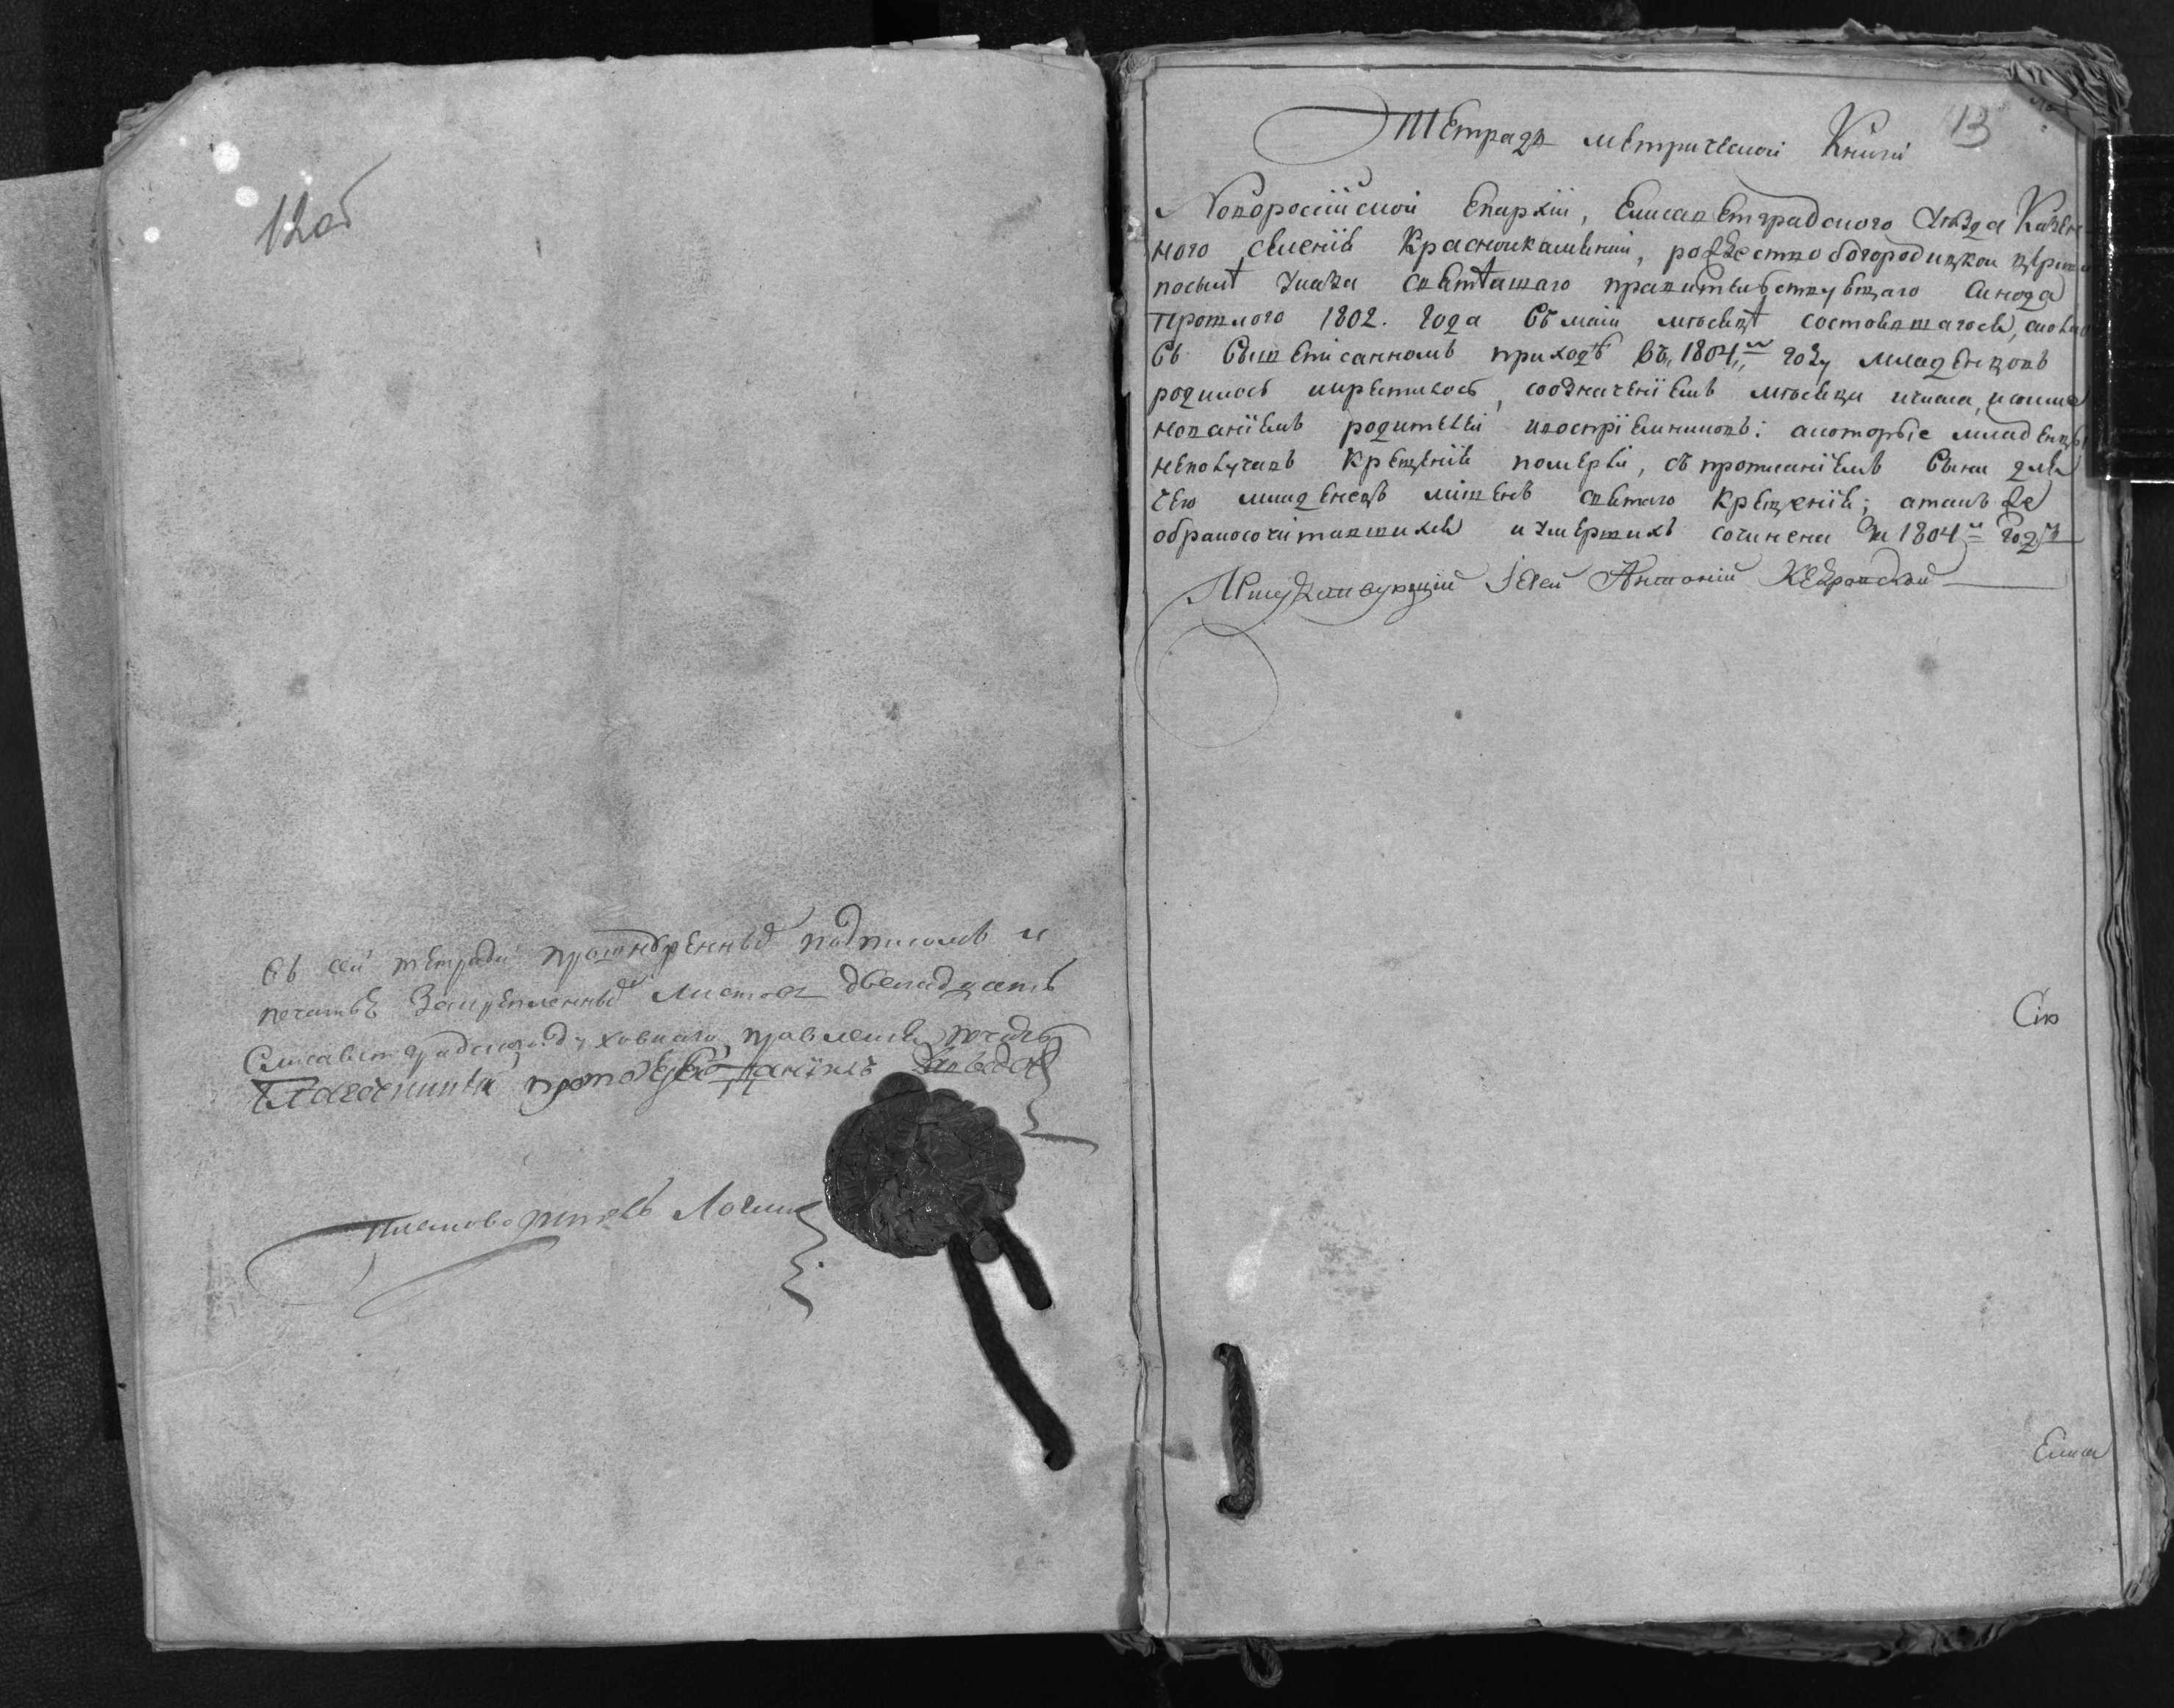 12об
Въ сей тетради прошнуренныхъ подписомъ и
печатью закрепленныхъ листовъ двенадцать
Елисаветградскаго духовнаго правления
протоиерей
Логин
13
Тетрадь метрической Книги
Новороссійской Епархіи, Елисаветградского уѣзда Казен-
ного селенія Краснокаменки, рождество богородицкои церкви
посылѣ указа святѣшаго правителствующаго синода
Прошлого 1802. года въ маіи месяцѣ состоявшагося, сколко
въ вышеписанномъ приходѣ въ 1804м году младенцовъ
родилось икрестилось, сообзначеніемъ мѣсяца ичисла, иимя
нованіемъ родителей ивоспріемниковъ: акоторые младенцы
неполучавъ крещенія померли, съ прописаніемъ вины для
чего младенецъ лишенъ святаго крещенія; атакъ же
обракосочитавшихся иумершихъ сочинена на 1804й годъ
Іерей Антоній
Сію
Елиса